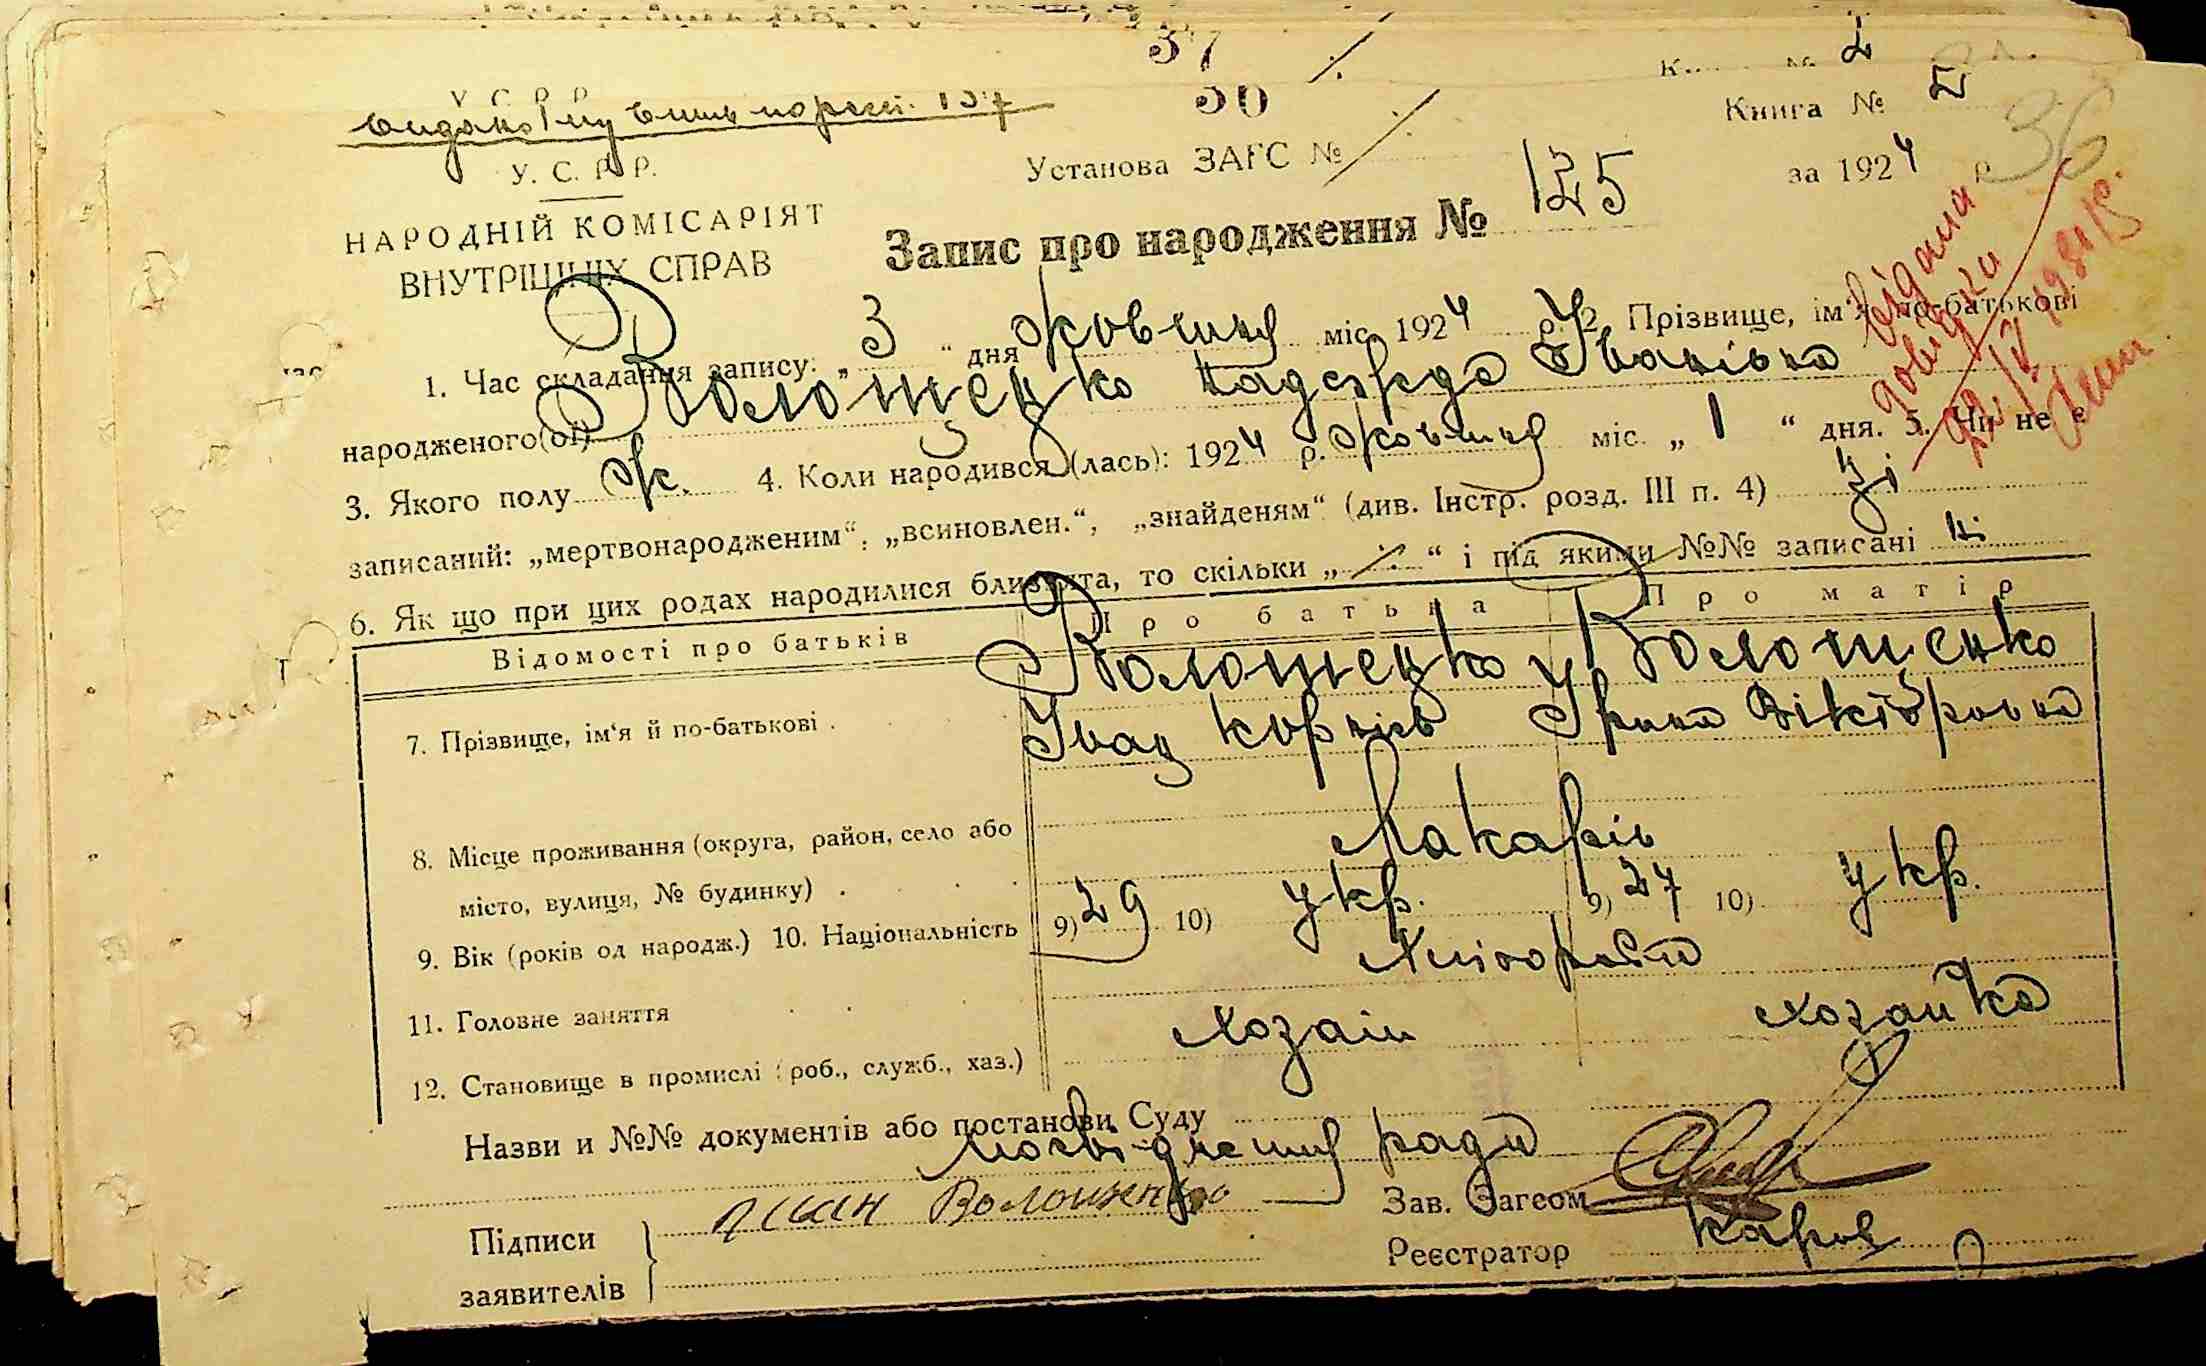 37
К № 2
30
Книга № 2
36
У. С. Р. Р.
Установа ЗАГС №
за 1924 р
НАРОДНІЙ КОМІСАРІЯТ
ВНУТРІШНІХ СПРАВ
Запис про народження № 125
видана
довідка
1. Час складання запису: „ 3 “ дня жовтня міс. 1924 р. 2. Прізвище, ім'я, по-батькові
народженого(ої) Волощенко Надежда Іванівна
3. Якого полу ж. 4. Коли народився (лась): 1924 р. жовтня міс. „ 1 “ дня. 5. Чи не є
записаний: „мертвонародженим“, „всиновлен.“, „знайденям“ (див. Інстр. розд. III п. 4) ні
6. Як що при цих родах народилися близнята, то скільки „ “ і під якими №№ записані ні
Відомості про батьків Про батька Про матір
7. Прізвище, ім'я й по-батькові . Волощенко Волощенко
Іван Корнієв Ірина Вікторовна
8. Місце проживання (округа, район, село або
місто, вулиця, № будинку) . Макарів
9. Вік (років од народж.) 10. Національність 9) 29 10) укр. 9) 27 10) укр.
11. Головне заняття Хліборобство
12. Становище в промислі (роб., служб., хаз.) Хозяїн Хозяйка
Назви и №№ документів або постанови Суду
посвідчення ради
Підписи
заявителів
Іван Волощенко
Зав. Загсом
Реєстратор